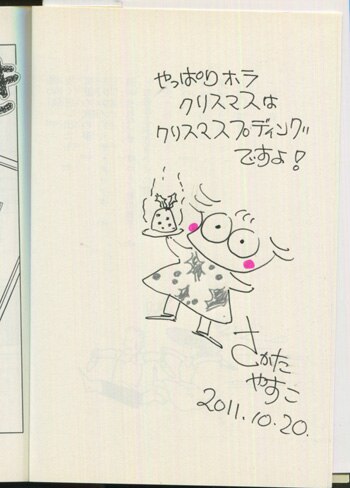 やっぱりホラ
クリスマスは
クリスマスプディング
ですよ!
さかた
やすこ
2011.10.20.